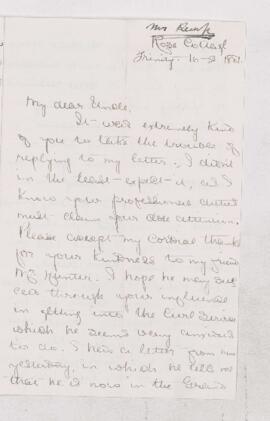 Mrs Kemp
Rose Cottage
Trinity. 16-2
My dear Uncle,
It was extremely kind
of you to take the trouble of
replying to my letter. I didn't
in the least expect it, as I
know your professional duties
must claim your close attention.
Please accept my cordial thanks
for your kindness to my friend
Mr Hunter. I hope he may suc-
ceed through your influence
in getting into the Civil Service
which he seems very anxious
to do. I had a letter from him
yesterday, in which he tells me
that he is now in the